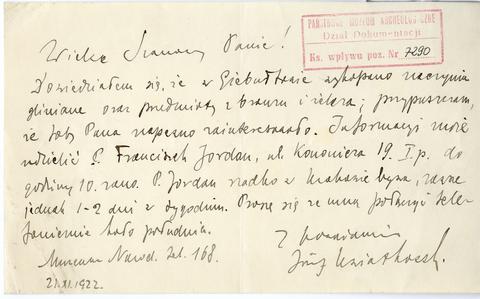 PAŃSTWOWE MUZEUM ARCHEOLOGICZNE
Dział Dokumentacji
Ks. wpływu poz. Nr 7290
Wielce Szanowny Panie!
Dowiedziałem się, że w Giebułtowie wykopano naczynia
gliniane oraz przedmioty z bronzu i żelaza; przypuszczam,
że toby Pana napewno zainteresowało. Informacyj może
udzielić P. Franciszek Jordan, ul. 19. I. p. do
godziny 10. rano. P. Jordan rzadko w Krakowie bywa, zawsze
jednak 1-2 dni w tygodniu. Proszę się ze mną połączyć tele-
fonicznie koło południa.
Z poważaniem
Muzeum Narod. tel. 168.
Józ. Kwiatkowski
21.XI.1922.